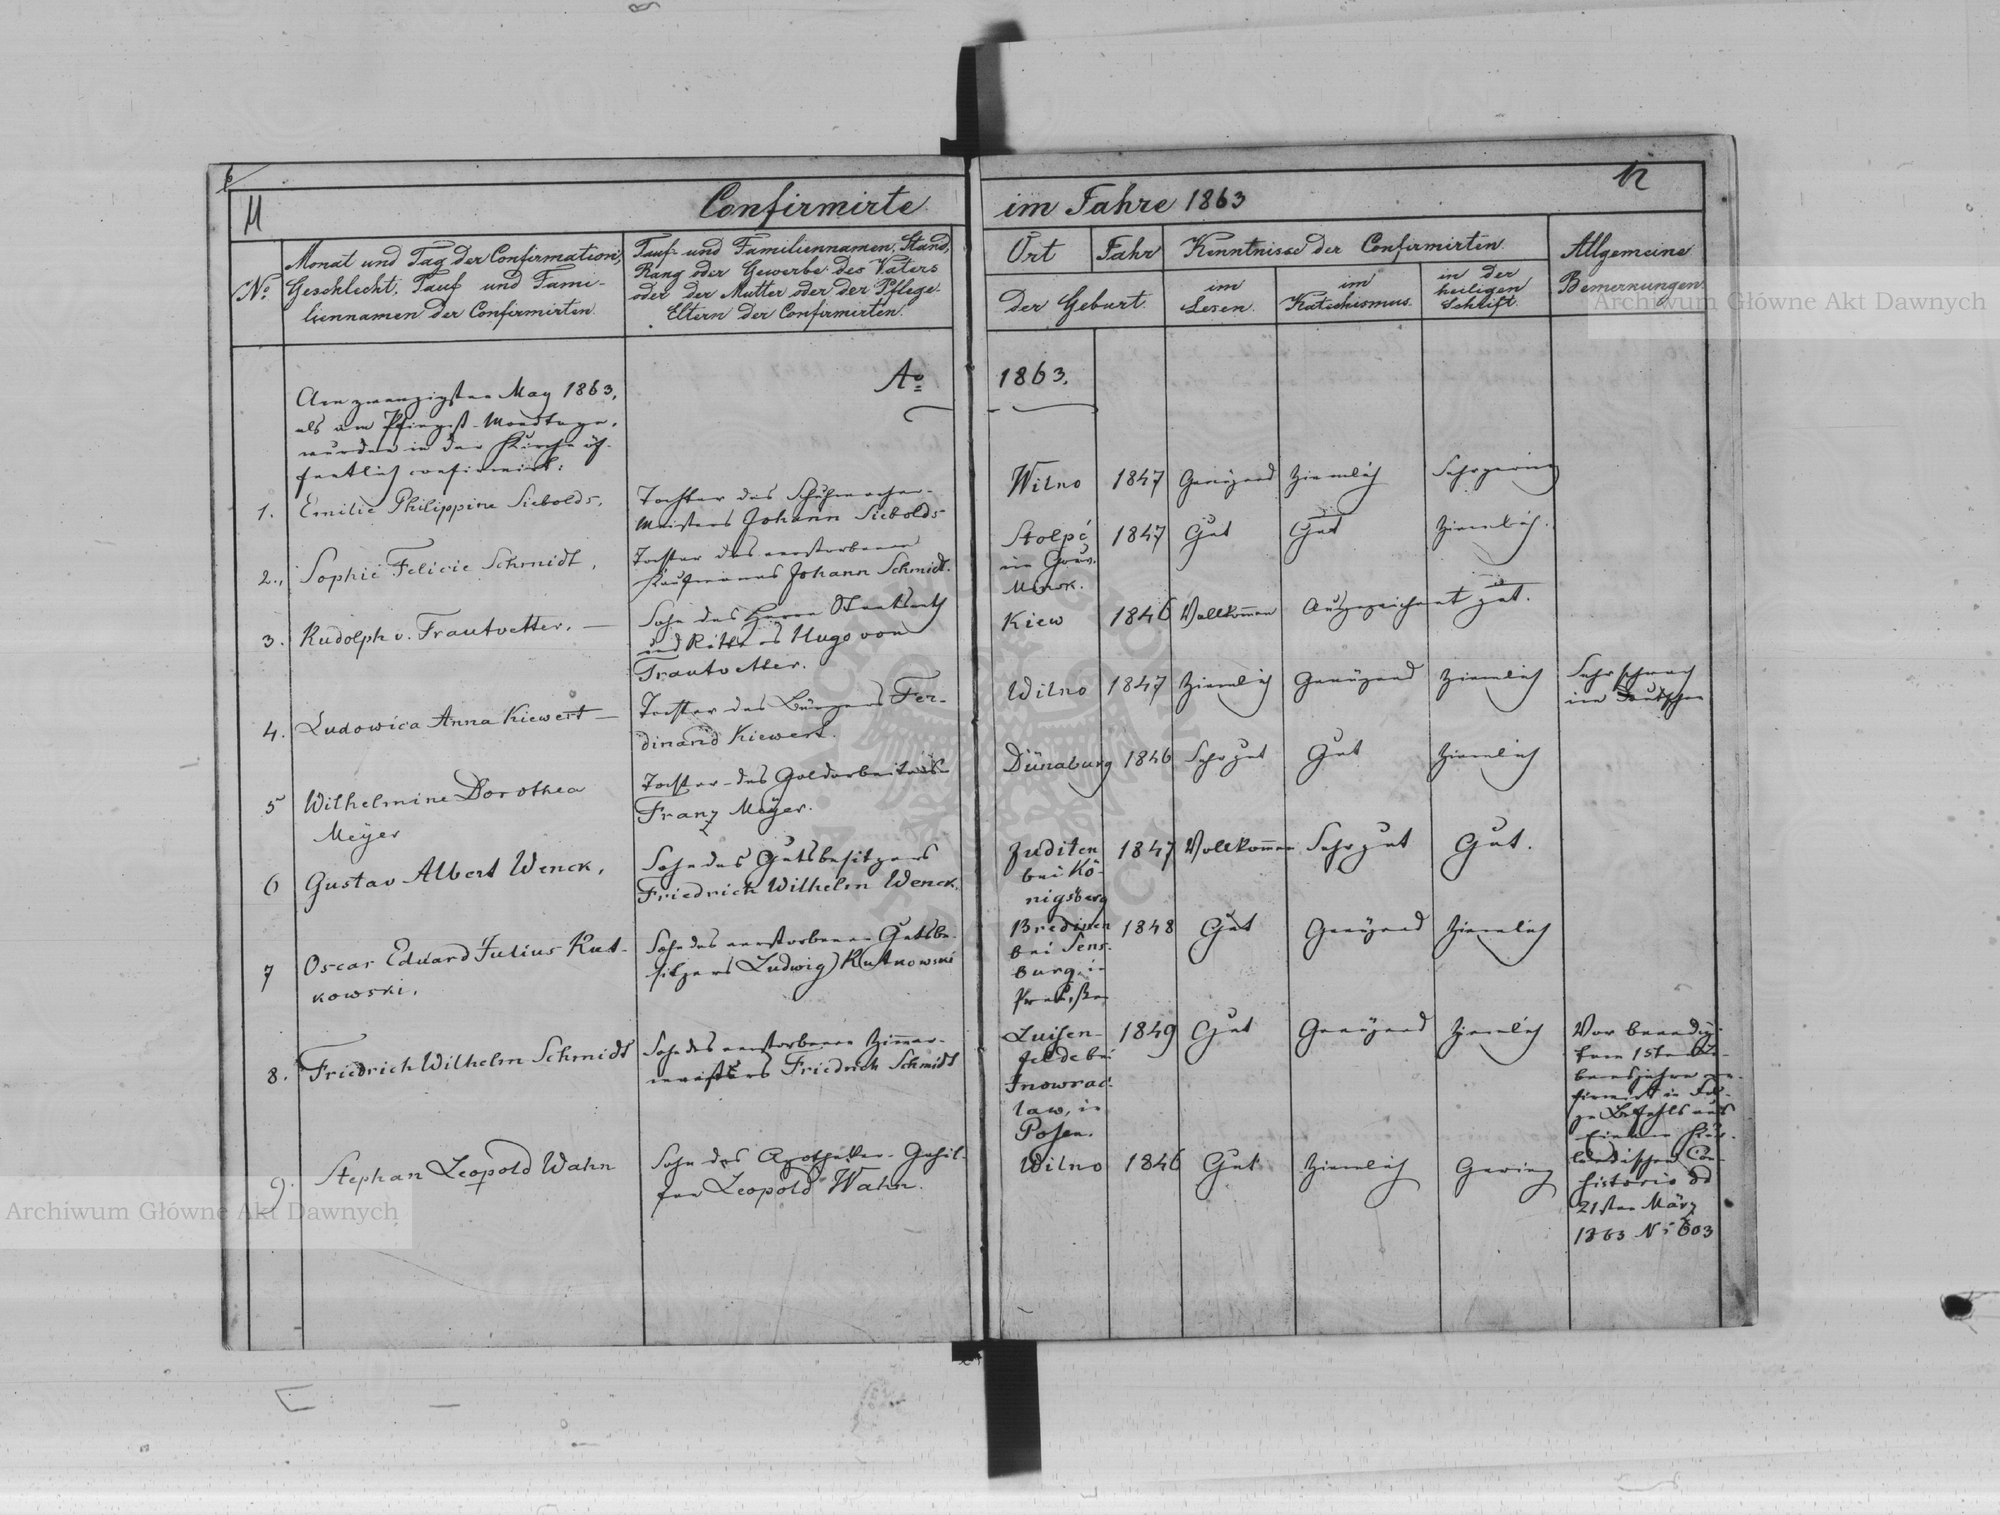 6
11
Confirmirte im Jahre 1863
12
No.
Monat und Tag der Confirmation,
Geschlecht, Tauf und Fami-
liennamen der Confirmirten.
Tauf- und Familiennamen, Stand,
Rang oder Gewerbe des Vaters
oder der Mutter oder der Pflege-
Eltern der Confirmirten.
Ort
Jahr
Der Geburt.
Kenntnisse der Confirmirten.
im
Lesen.
im
Katechismus.
in der
heiligen
Schrift.
Allgemeine
Bemerkungen.
Ao 1863.
Am zwanzigsten May 1863,
als am Pfingst-Mondtage,
wurden in der Kirche öf-
fentlich confirmirt:
1. Emilie Philippine Siebolds.
Tochter des Schuhmacher-
Meisters Johann Siebolds
Wilno
1847
Genügend
Ziemlich
Sehr gering
2. Sophie Felicie Schmidt,
Tochter des verstorbenen
Kaufmanns Johann Schmidt.
Stolpé
im Gouv.
Minsk.
1847
Gut
Gut
Ziemlich.
3. Rudolph v. Trautvetter. —
Sohn des Herrn Staatsrath
und Ritters Hugo von
Trautvetter.
Kiew
1846
Vollkommen
Ausgezeichnet gut.
4. Ludowica Anna Kiewert —
Tochter des Bürgers Fer-
dinand Kiewert.
Wilno
1847
Ziemlich
Genügend
Ziemlich
Sehr schwach
im Deutschen
5 Wilhelmine Dorothea
Meÿer
Tochter des Goldarbeiters
Franz Meÿer.
Dünaburg
1846
Sehr gut
Gut
Ziemlich
6 Gustav Albert Wenck,
Sohn des Gutsbesitzers
Friedrich Wilhelm Wenck.
Juditen
bei Kö-
nigsberg
1847
Vollkommen
Sehr gut
Gut.
7 Oscar Eduard Julius Rut-
kowski.
Sohn des verstorbenen Gutsbe-
sitzers Ludwig Rutkowski
Bredinen
bei Sens-
burg in
Preußen
1848
Gut
Genügend
Ziemlich
8. Friedrich Wilhelm Schmidt
Sohn des verstorbenen Zimmer-
meisters Friedrich Schmidt
Luisen-
felde bei
Inowrac-
law, in
Posen.
1849
Gut
Genügend
Ziemlich
Vor beendig-
tem 15ten Le-
bensjahre con-
firmirt in Fol-
ge Befehls aus
Einem Kur-
ländischen Con-
sistorio dd
21sten März
1863 No 603
9. Stephan Leopold Wahn
Sohn des Apotheker-Gehil-
fen Leopold Wahn.
Wilno
1846
Gut
Ziemlich
Gering
Archiwum Główne Akt Dawnych
Archiwum Główne Akt Dawnych